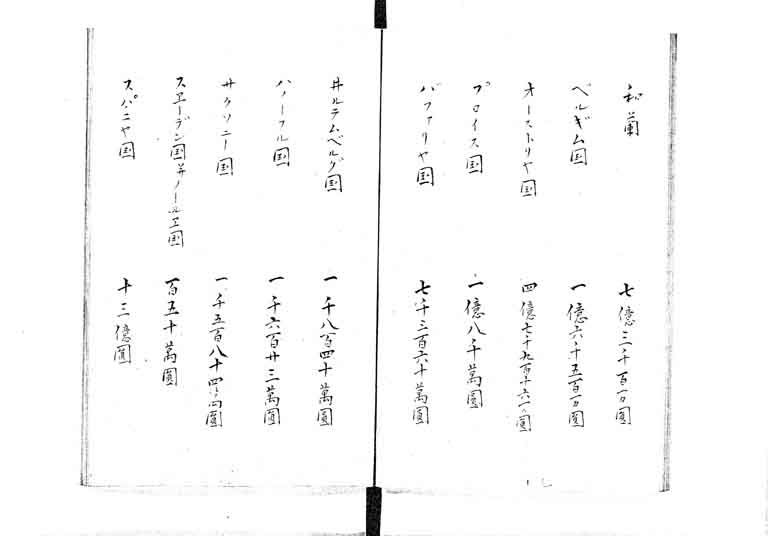 和蘭 七億三千百万圓
ベルギム国 一億六千五百万圓
オーストリヤ国 四億七千九百十六万圓
プロイス国 一億八千萬圓
バファリヤ国 七千三百六十萬圓
井ルテムベルグ国 一千八百四十萬圓
ハノーフル国 一千六百廿三萬圓
サクソニー国 一千五百八十四萬圓
スヱーデン国并ノールヱ国 百五十萬圓
スパニヤ国 十三億圓